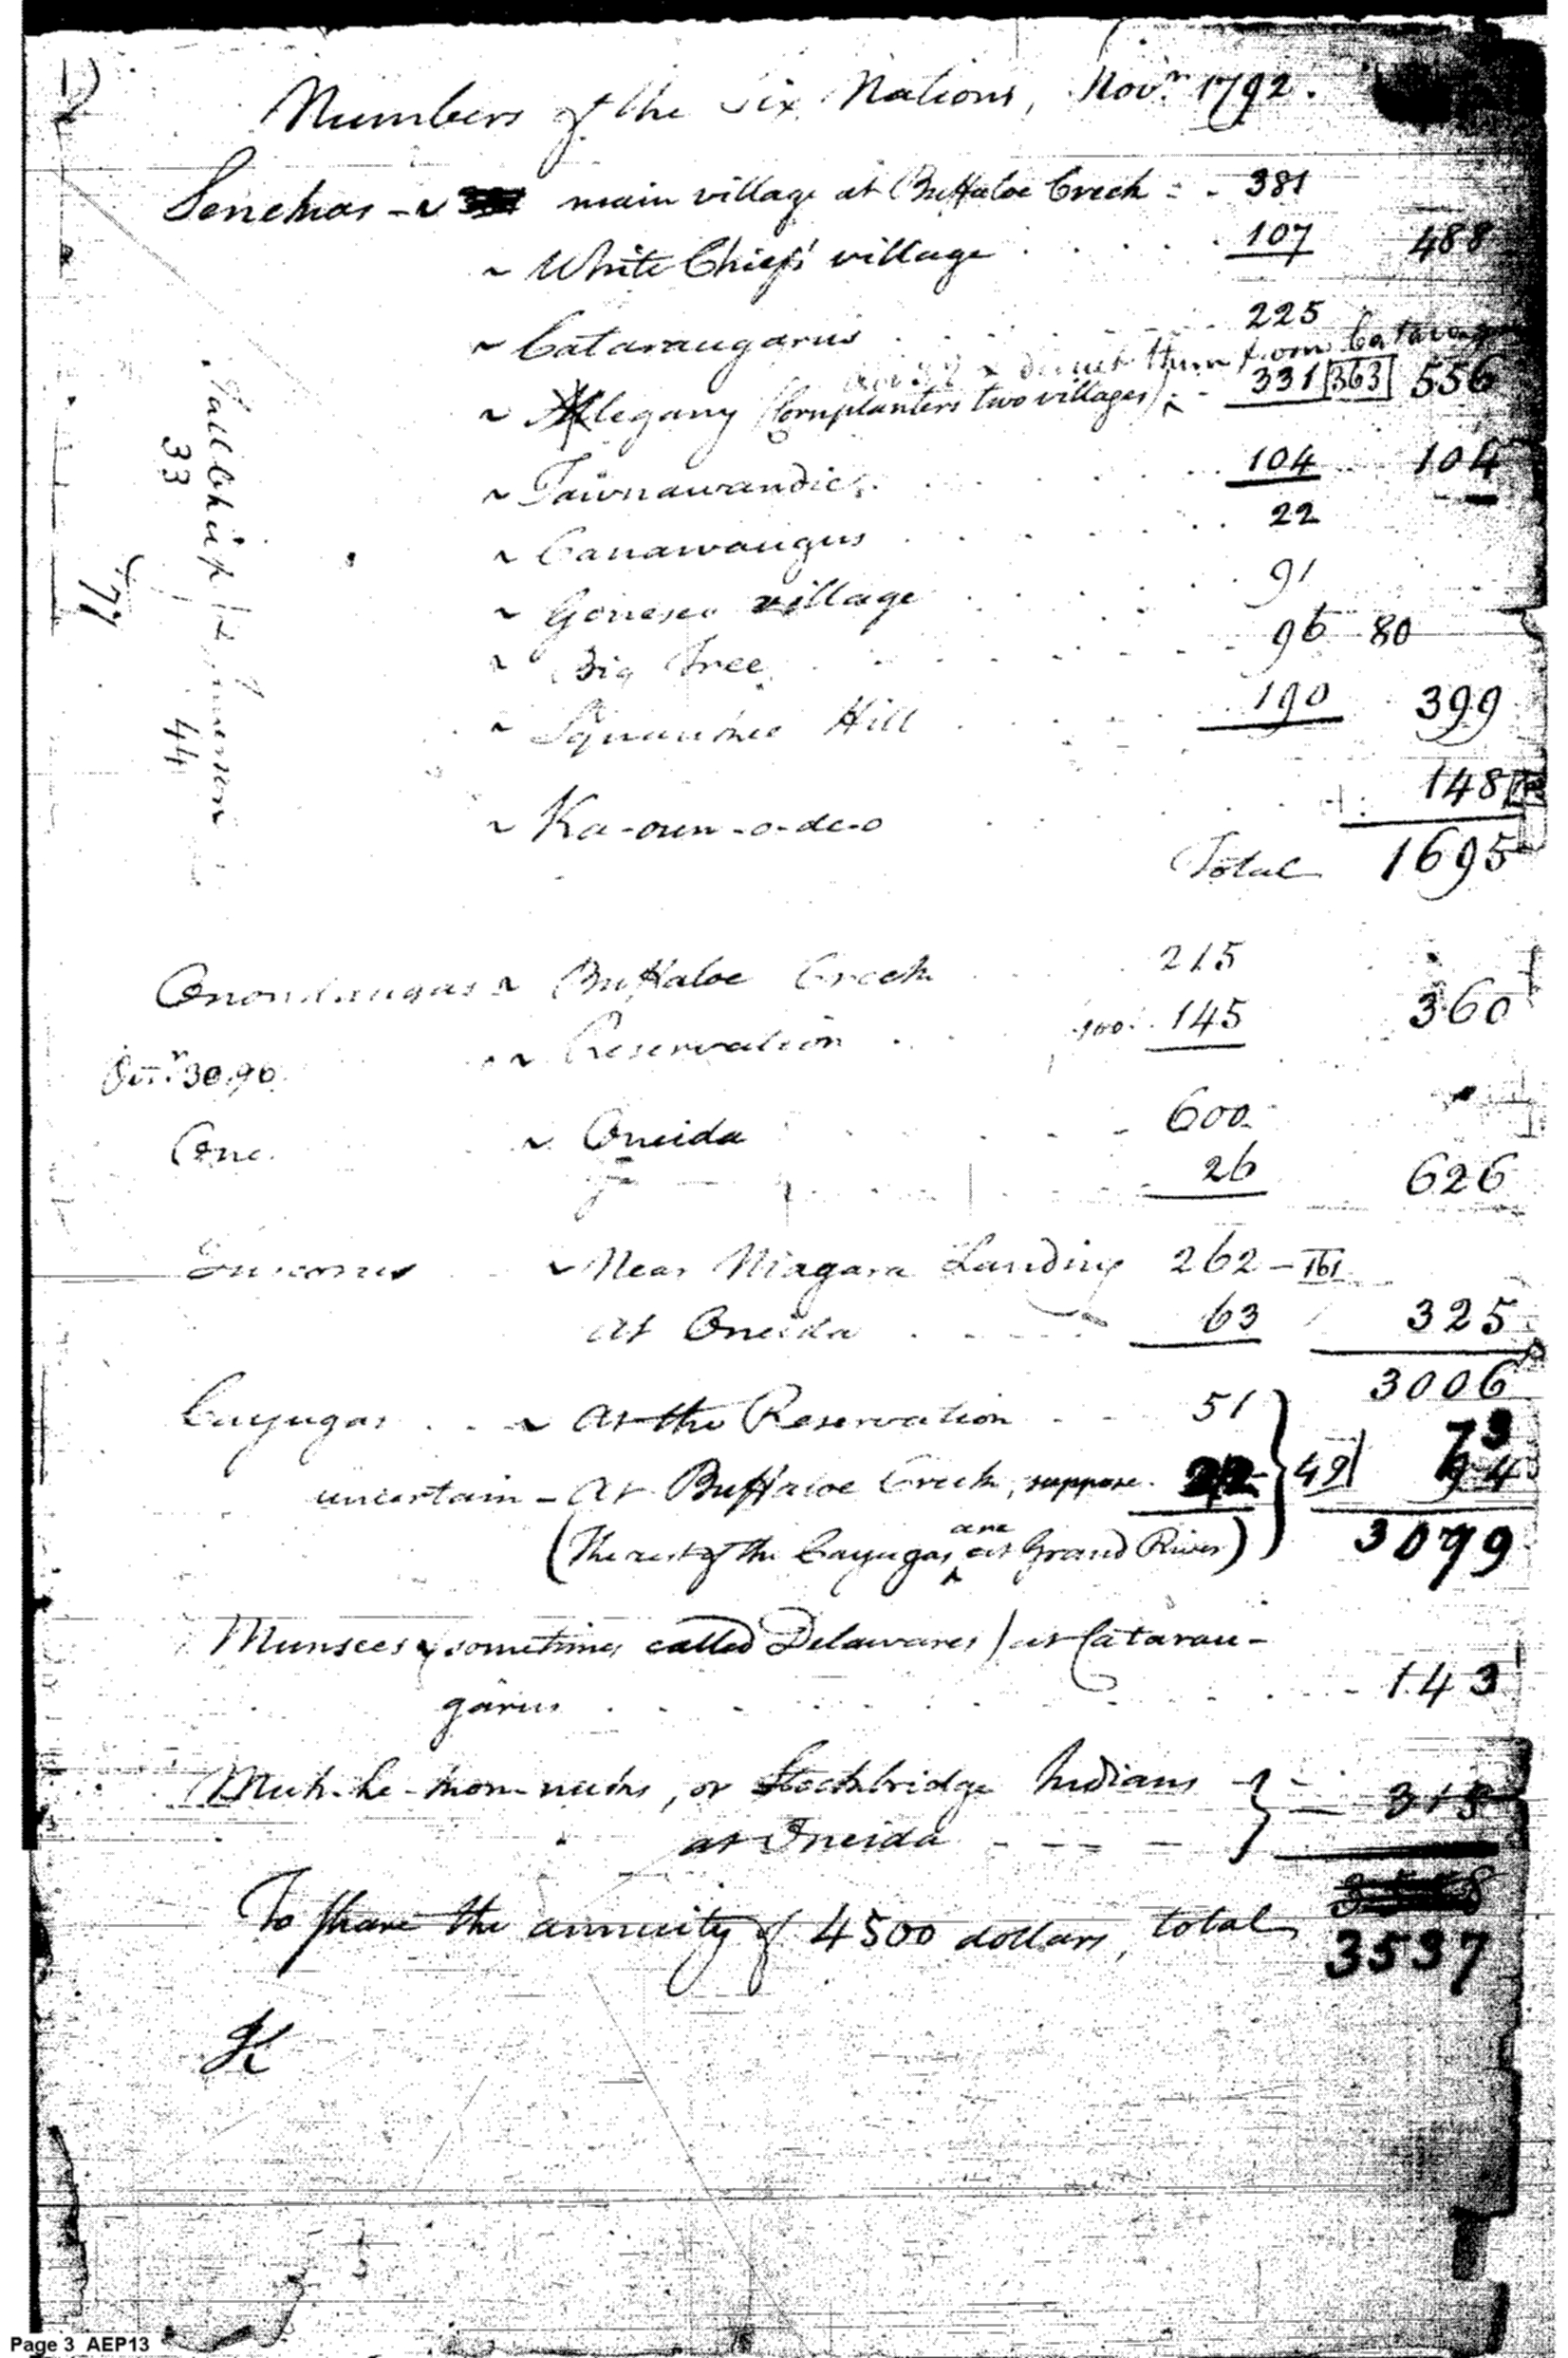 Numbers of the Six Nations, Nov.r 1792.
Senekas - main village at Buffaloe Creek - - 381
~ White Chief's village . . . . 107 488
~ Cataraugarus . . . 225
deduct them from
~ Allegany (Cornplanters two villages) - 331 363 556
~ Tawnawandie . . . 104 104
~ Canawaugus . . . 22
~ Geneseo village . . . 91
~ Big Tree . . . 96 80
~ Hill . . . 190 399
~ Ka-oun-o-de-o . . . 148
Total 1695
33 44
77
Onondaugas ~ Buffaloe Creek . . 215
~ Reservation . . 145 360
30.96.
~ Oneida . . . 600
26 626
~ Near Niagara Landing 262 - 161
at Oneida . . . 63 325
3006
Cayugas . . ~ At the Reservation . . 51
73
uncertain - At Buffaloe Creek, suppose. 22 49
(The rest of the Cayugas are at Grand River) 3079
Munsees (sometimes called Delawares) at Catarau-
garus . . . 143
Muh-he-kon-nuks, or Stockbridge Indians
at Oneida - - - - 315
To share the annuity of 4500 dollars, total
3537
Page 3 AEP13